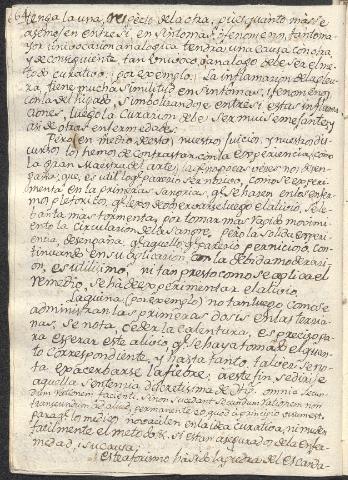 (64) tenga la una, respecto de la otra, pues quanto mas se
asemejen entre si, en sintomas, y fenomenos, tanto ma-
yor univocacion analogica tendra una causa con otra
y de consiguiente tan univoco, y analogo debe ser el me-
todo curativo: por exemplo: La inflamacion de la pleu-
ra, tiene mucha similitud en sintomas, y fenomenos
con la del higado, simbolizandose entre si estas inflama-
ciones, luego la curacion debe ser mui semejante; y
asi de otras enfermedades.
Pero (en medio de esto) nuestro juicio, y nuestro dis-
curso, lo hemos de contrastar con la experiencia, como
la gran Maestra del arte;
gaña; que, es util lo que parecio ser nocibo, como se experi-
menta en las primeras sangrias, que se hacen en los enfer-
mos pletoricos,
banta mas tormenta, por tomar mas rapido movimi-
ento la circulacion de la sangre, pero la solida experi-
encia, desengaña, que aquello, que parecio pernicioso, con-
tinuando en su aplicacion, con la debida moderaci-
on, es utilisimo, ni tan presto como se aplica el
remedio, se ha de experimentar el alivio.
La quina (por exemplo) no tan luego como se
administran las primeras dosis en las tercia-
nas, se nota, ceder la calentura, es preciso pa-
ra esperar este alivio, que se haya tomado el quan-
to correspondiente, y hasta tanto, tal vez se no-
ta exacerbarse la fiebre; a este fin se dirije
aquella sentencia de Hip. omnia secun-
dum rationem facienti, si non succedant secundum rationem non
transeundum ad aliud, permanente eo quod a principio visum est
para que los medicos no vacilen en la idea curativa, ni muden
facilmente el metodo, si estan asegurados de la enfer-
medad, y su causa;
Este aforismo ha sido la piedra del escanda-